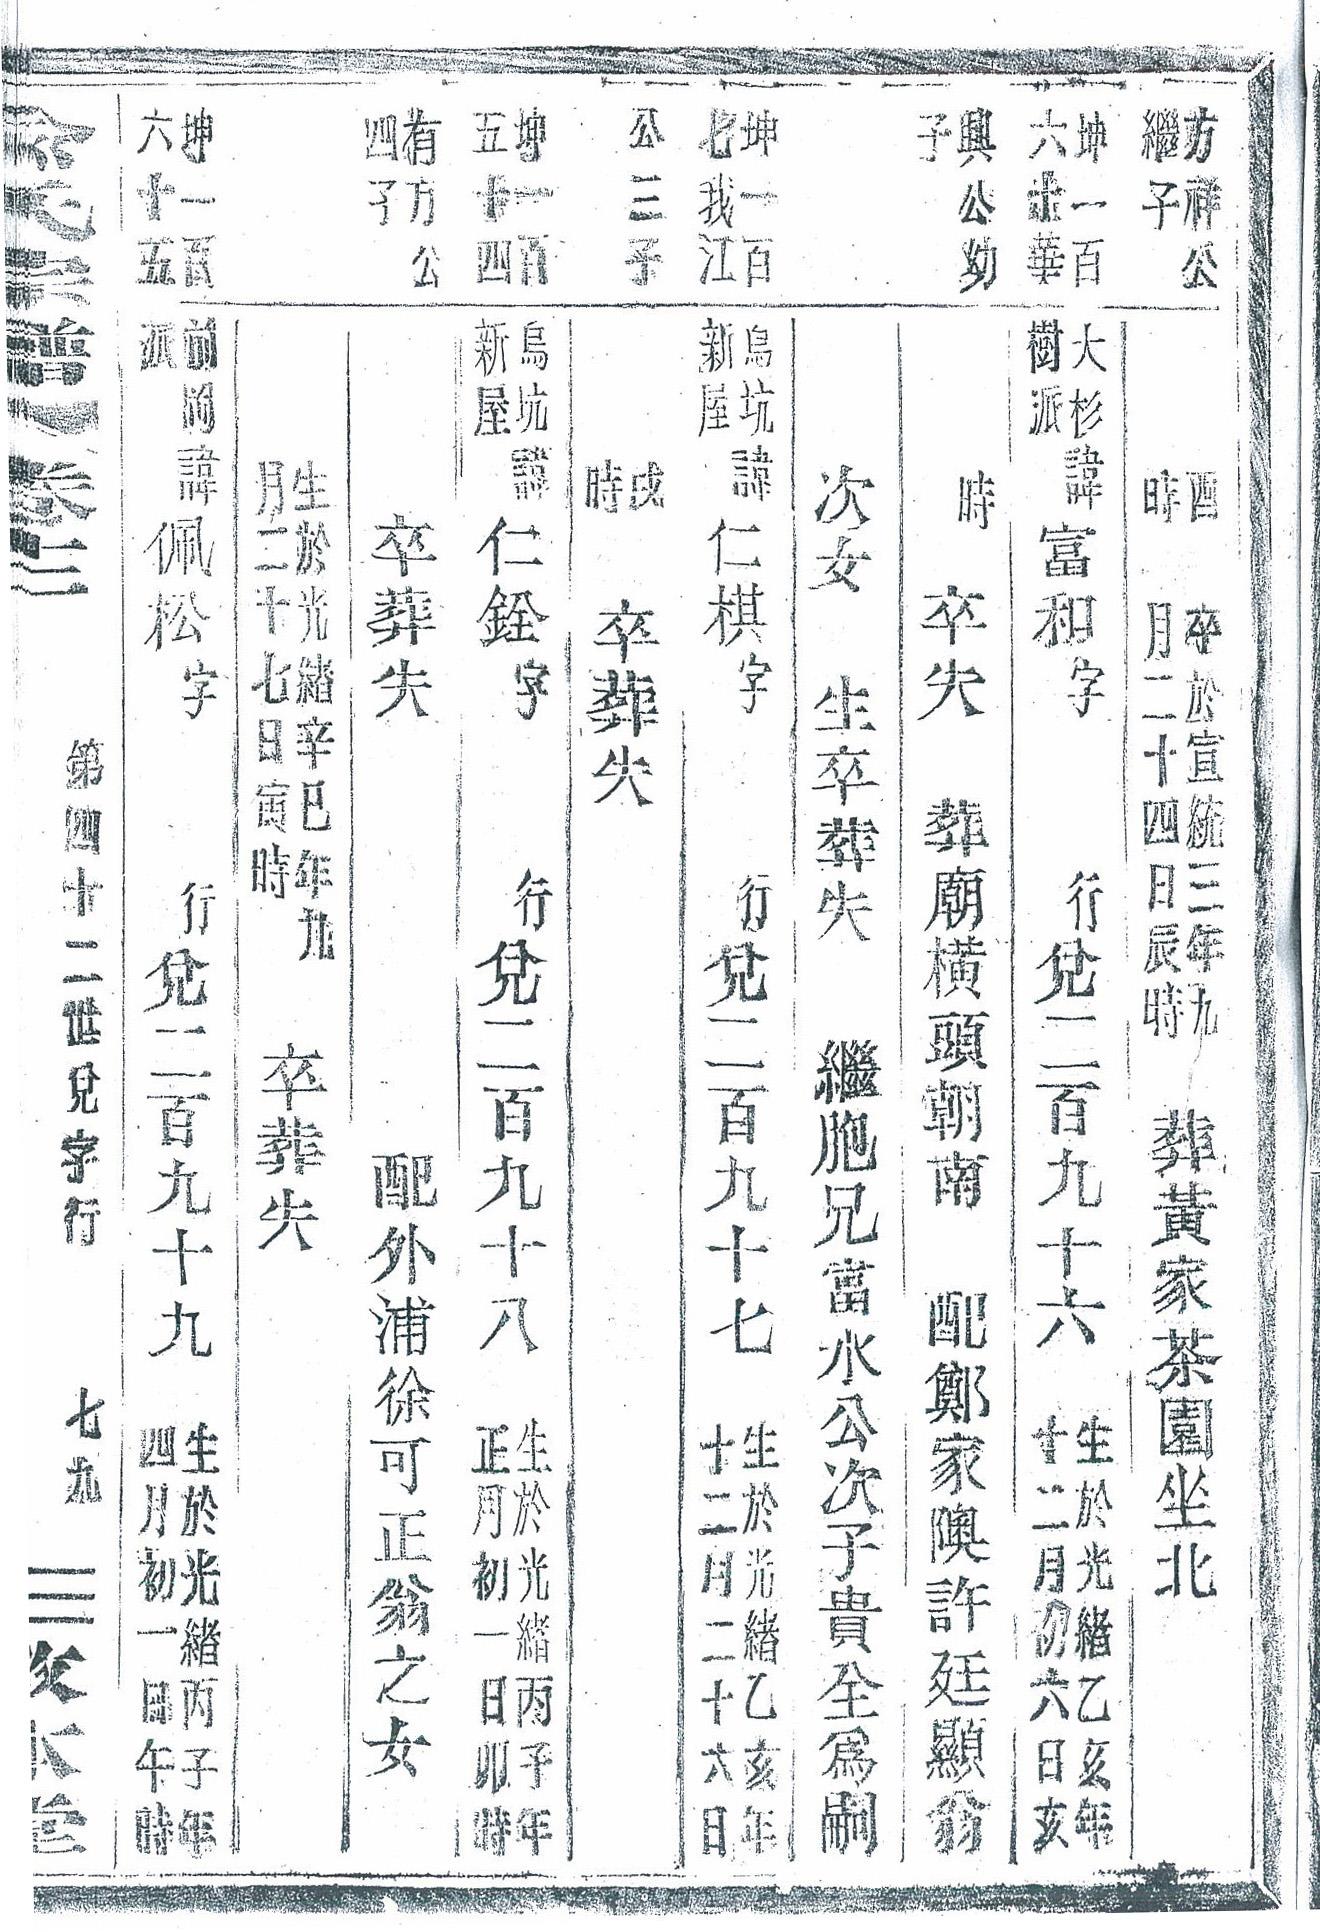 方祥公
繼子
酉
時
卒於宣統三年九
月二十四日辰時
葬黃家茶園坐北
坤一百
六十華
大杉諱
樹派
富和字
行兌二百九十六
生於光緒乙亥年
十二月初六日亥
興公幼
子
時
卒失
葬廟橫頭朝南
配鄭家隩許廷顯翁
次女
生卒葬失
繼胞兄富水公次子貴全為嗣
坤一百
七我江
烏坑諱
新屋
仁棋字
行兌二百九十七
生於光緒乙亥年
十二月二十六日
公三子
戌
時
卒葬失
坤一百
五十四
烏坑諱
新屋
仁銓字
行兌二百九十八
生於光緒丙子年
正月初一日卯時
有方公
四子
卒葬失
配外浦徐可正翁之女
生於光緒辛巳年九
月二十七日寅時
卒葬失
坤一百
六十五
前岡諱
派
佩松字
行兌二百九十九
生於光緒丙子年
四月初一日午時
氏宗譜卷三
第四十二世兌字行
七九
堂